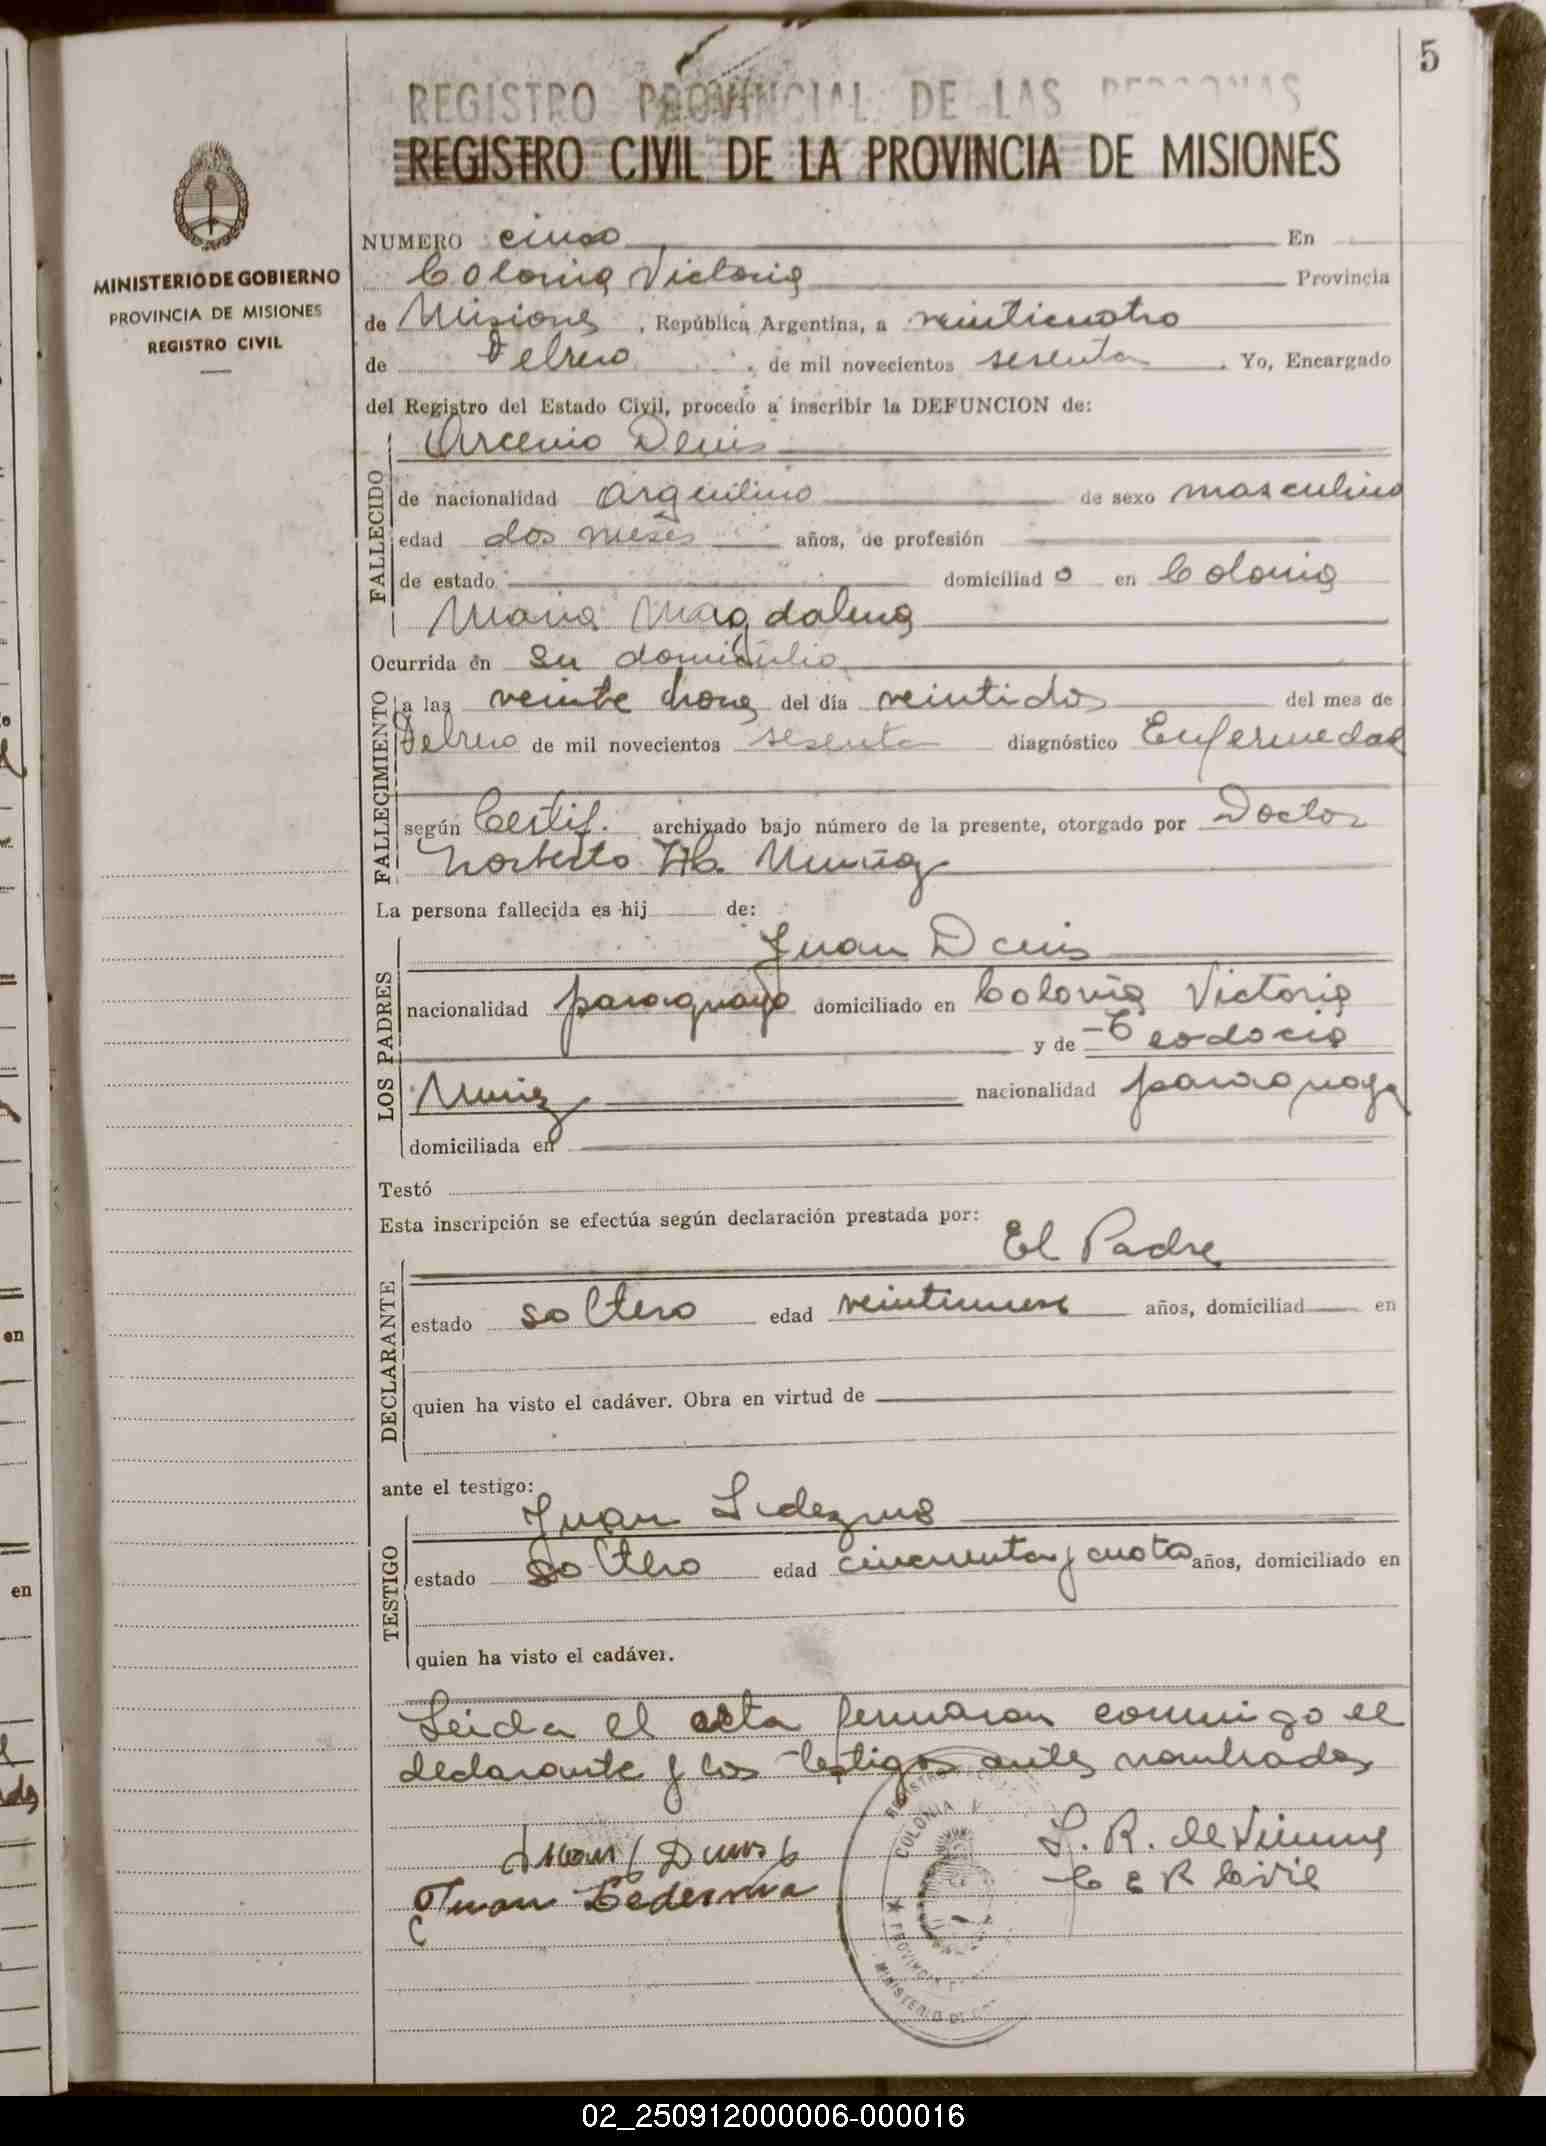 5
REGISTRO PROVINCIAL DE LAS PERSONAS
REGISTRO CIVIL DE LA PROVINCIA DE MISIONES
MINISTERIO DE GOBIERNO
PROVINCIA DE MISIONES
REGISTRO CIVIL
NUMERO cinco En
Colonia Victoria Provincia
de Misiones, República Argentina, a veinticuatro
de Febrero, de mil novecientos sesenta. Yo, Encargado
del Registro del Estado Civil, procedo a inscribir la DEFUNCION de:
FALLECIDO
Arcenio Denis
de nacionalidad argentino de sexo masculino
edad dos meses años, de profesión
de estado domiciliado en Colonia
Maria Magdalena
Ocurrida en su domicilio
FALLECIMIENTO
a las veinte horas del día veintidos del mes de
Febrero de mil novecientos sesenta diagnóstico Enfermedad
según Certif. archivado bajo número de la presente, otorgado por Doctor
Norberto Muñoz
La persona fallecida es hij de:
LOS PADRES
Juan Denis
nacionalidad paraguayo domiciliado en Colonia Victoria
y de Teodocia
Muniz nacionalidad paraguaya
domiciliada en
Testó
Esta inscripción se efectúa según declaración prestada por:
DECLARANTE
El Padre
estado soltero edad veintinueve años, domiciliad en
quien ha visto el cadáver. Obra en virtud de
ante el testigo:
TESTIGO
Juan Ledezma
estado soltero edad cincuenta y cuatro años, domiciliado en
quien ha visto el cadáver.
Leida el acta firmaron conmigo el
declarante y los testigos antes nombrados
Juan Denis
Juan Ledesma
COLONIA V
PROVINCIA
MINISTERIO DE
en
en
02_250912000006-000016